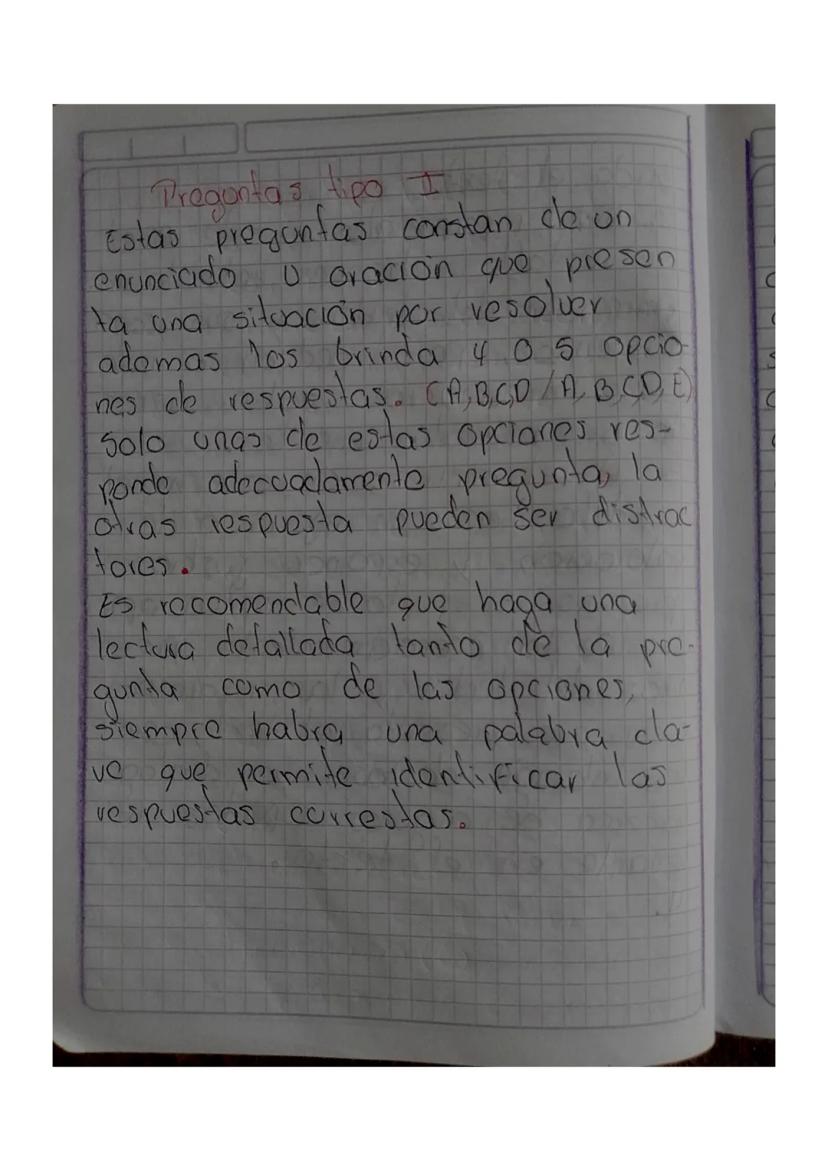 Preguntas tipo I
Estas preguntas constan de un
enunciado u oración que presen
ta una situación por resolver
ademas los brinda 4 o 5 opcio
nes de respuestas. (A,B,C,D / A, B, C, D, E)
solo unas de estas opciones res-
ponde adecuadamente pregunta, la
otras respuesta pueden ser distrac
tores.
Es recomendable que haga una
lectura detallada tanto de la pre-
gunta como de las opciones,
siempre habra una palabra cla-
ve que permite identificar las
respuestas correstas.